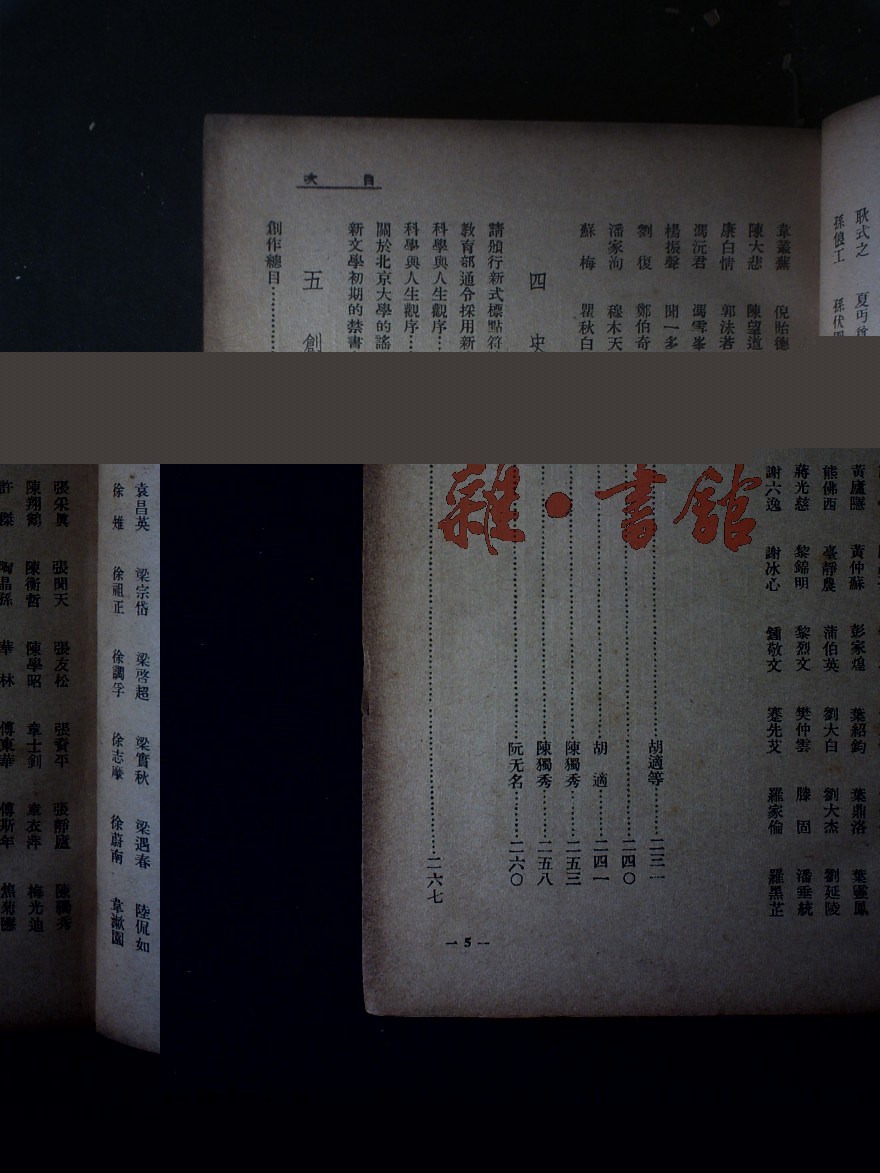 目次
韋叢蕪 倪貽德
陳大悲 陳望道
康白情 郭沫若
馮沅君 馮雪峯
楊振聲 聞一多
劉復 鄭伯奇
潘家洵 穆木天
蘇梅 瞿秋白
四 史
請頒行新式標點符
教育部通令採用新
科學與人生觀序
科學與人生觀序
關於北京大學的謠
新文學初期的禁書
五 創
創作總目
耿式之 夏丏尊
孫俍工 孫伏園
袁昌英 梁宗岱 梁啓超 梁實秋 梁遇春 陸侃如
徐雉 徐祖正 徐調孚 徐志摩 徐蔚南 韋漱園
張采真 張聞天 張友松 張資平 張靜廬 陳獨秀
陳翔鶴 陳衡哲 陳學昭 章士釗 章衣萍 梅光迪
許傑 陶晶孫 華林 傅東華 傅斯年 焦菊隱
葉紹鈞 葉鼎洛 葉靈鳳
黃廬隱 黃仲蘇 彭家煌
熊佛西 臺靜農 蒲伯英 劉大白 劉大杰 劉延陵
蔣光慈 黎錦明 黎烈文 樊仲雲 滕固 潘垂統
謝六逸 謝冰心 鍾敬文 蹇先艾 羅家倫 羅黑芷
胡適等 二三一
二四〇
胡適 二四一
陳獨秀 二五三
陳獨秀 二五八
阮无名 二六〇
二六七
— 5 —
雜·書館